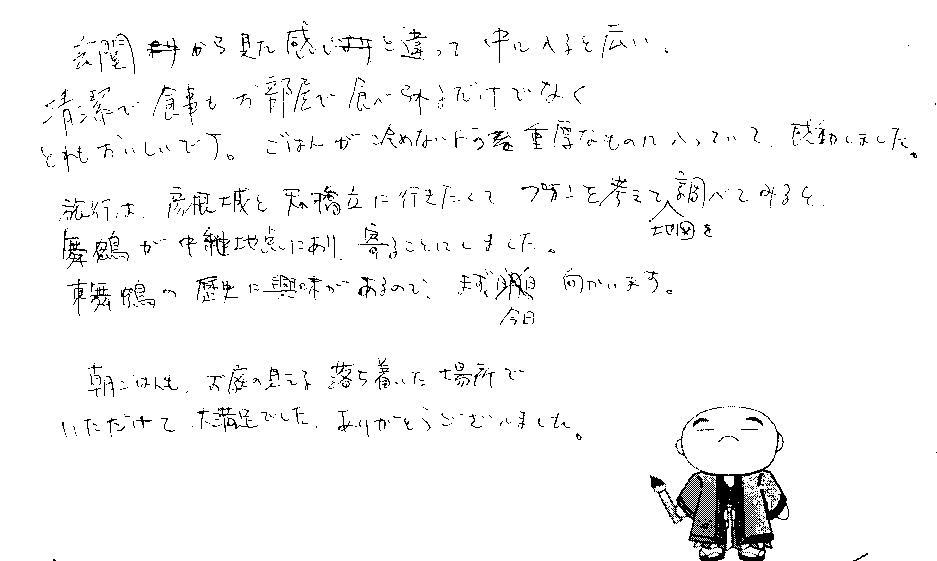 玄関から見た感じと違って 中に入ると広い。
清潔で 食事も お部屋で 食べられるだけでなく
とれもおいしいです。ごはんが 冷めないような 重厚なものに入っていて、感動しました。
旅行は、彦根城と 天橋立に行きたくて プランを考えて 地図を 調べてみると、
舞鶴が 中継地点にあり 寄ることにしました。
東舞鶴の 歴史に興味があるので、まず 今日 向かいます。
朝ごはんも、お庭の見える 落ち着いた 場所で
いただけて 大満足でした。ありがとうございました。